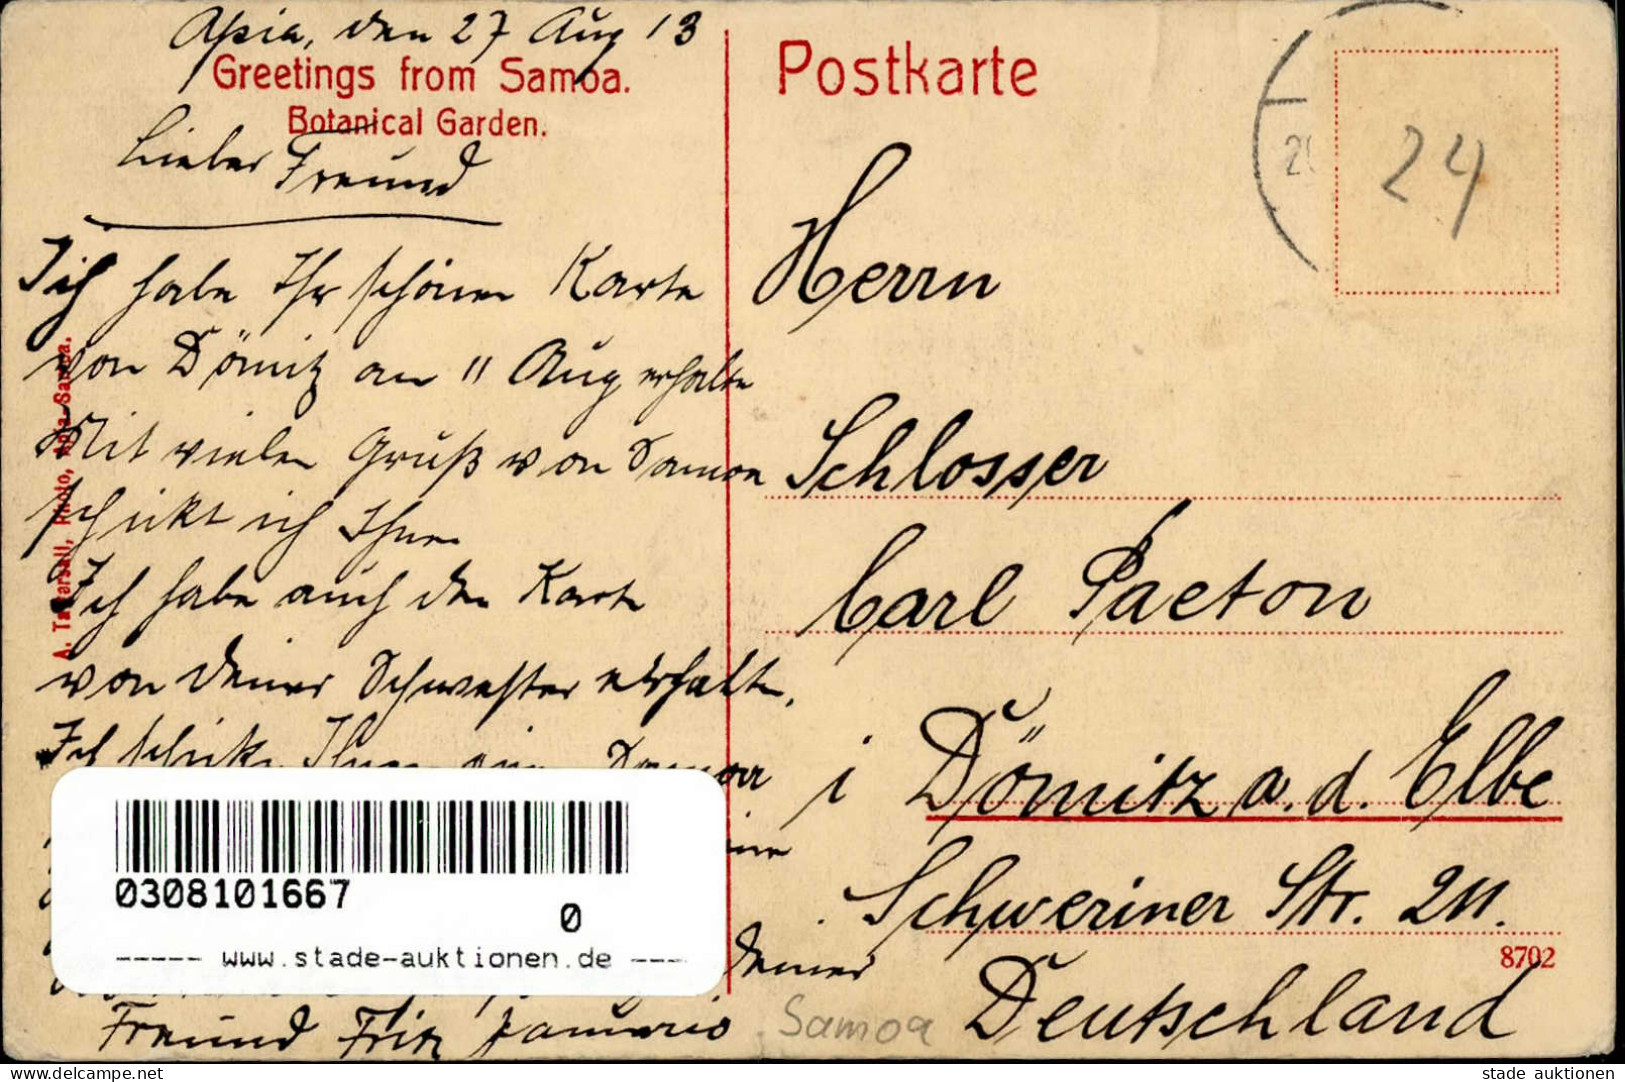 Apia, den 27 Aug 13
Greetings from Samoa.
Botanical Garden.
Lieber Freund
Ich habe Ihr schönen Karte
von Dömitz am 11 Aug erhalte
Mit vielen Gruß von Samoa
schickt ich Ihnen
Ich habe auch den Karte
von deiner Schwester erhalte.
Ich schicke Ihnen Samoa
deiner
Freund Fritz
A. Tattersall, Photo, Apia-Samoa.
Postkarte
24
Herrn
Schlosser
Carl Paeton
i Dömitz a. d. Elbe
Schweriner Str. 211.
8702
Deutschland
Samoa
0308101667
0
----- www.stade-auktionen.de ---
delcampe.net
stade auktionen